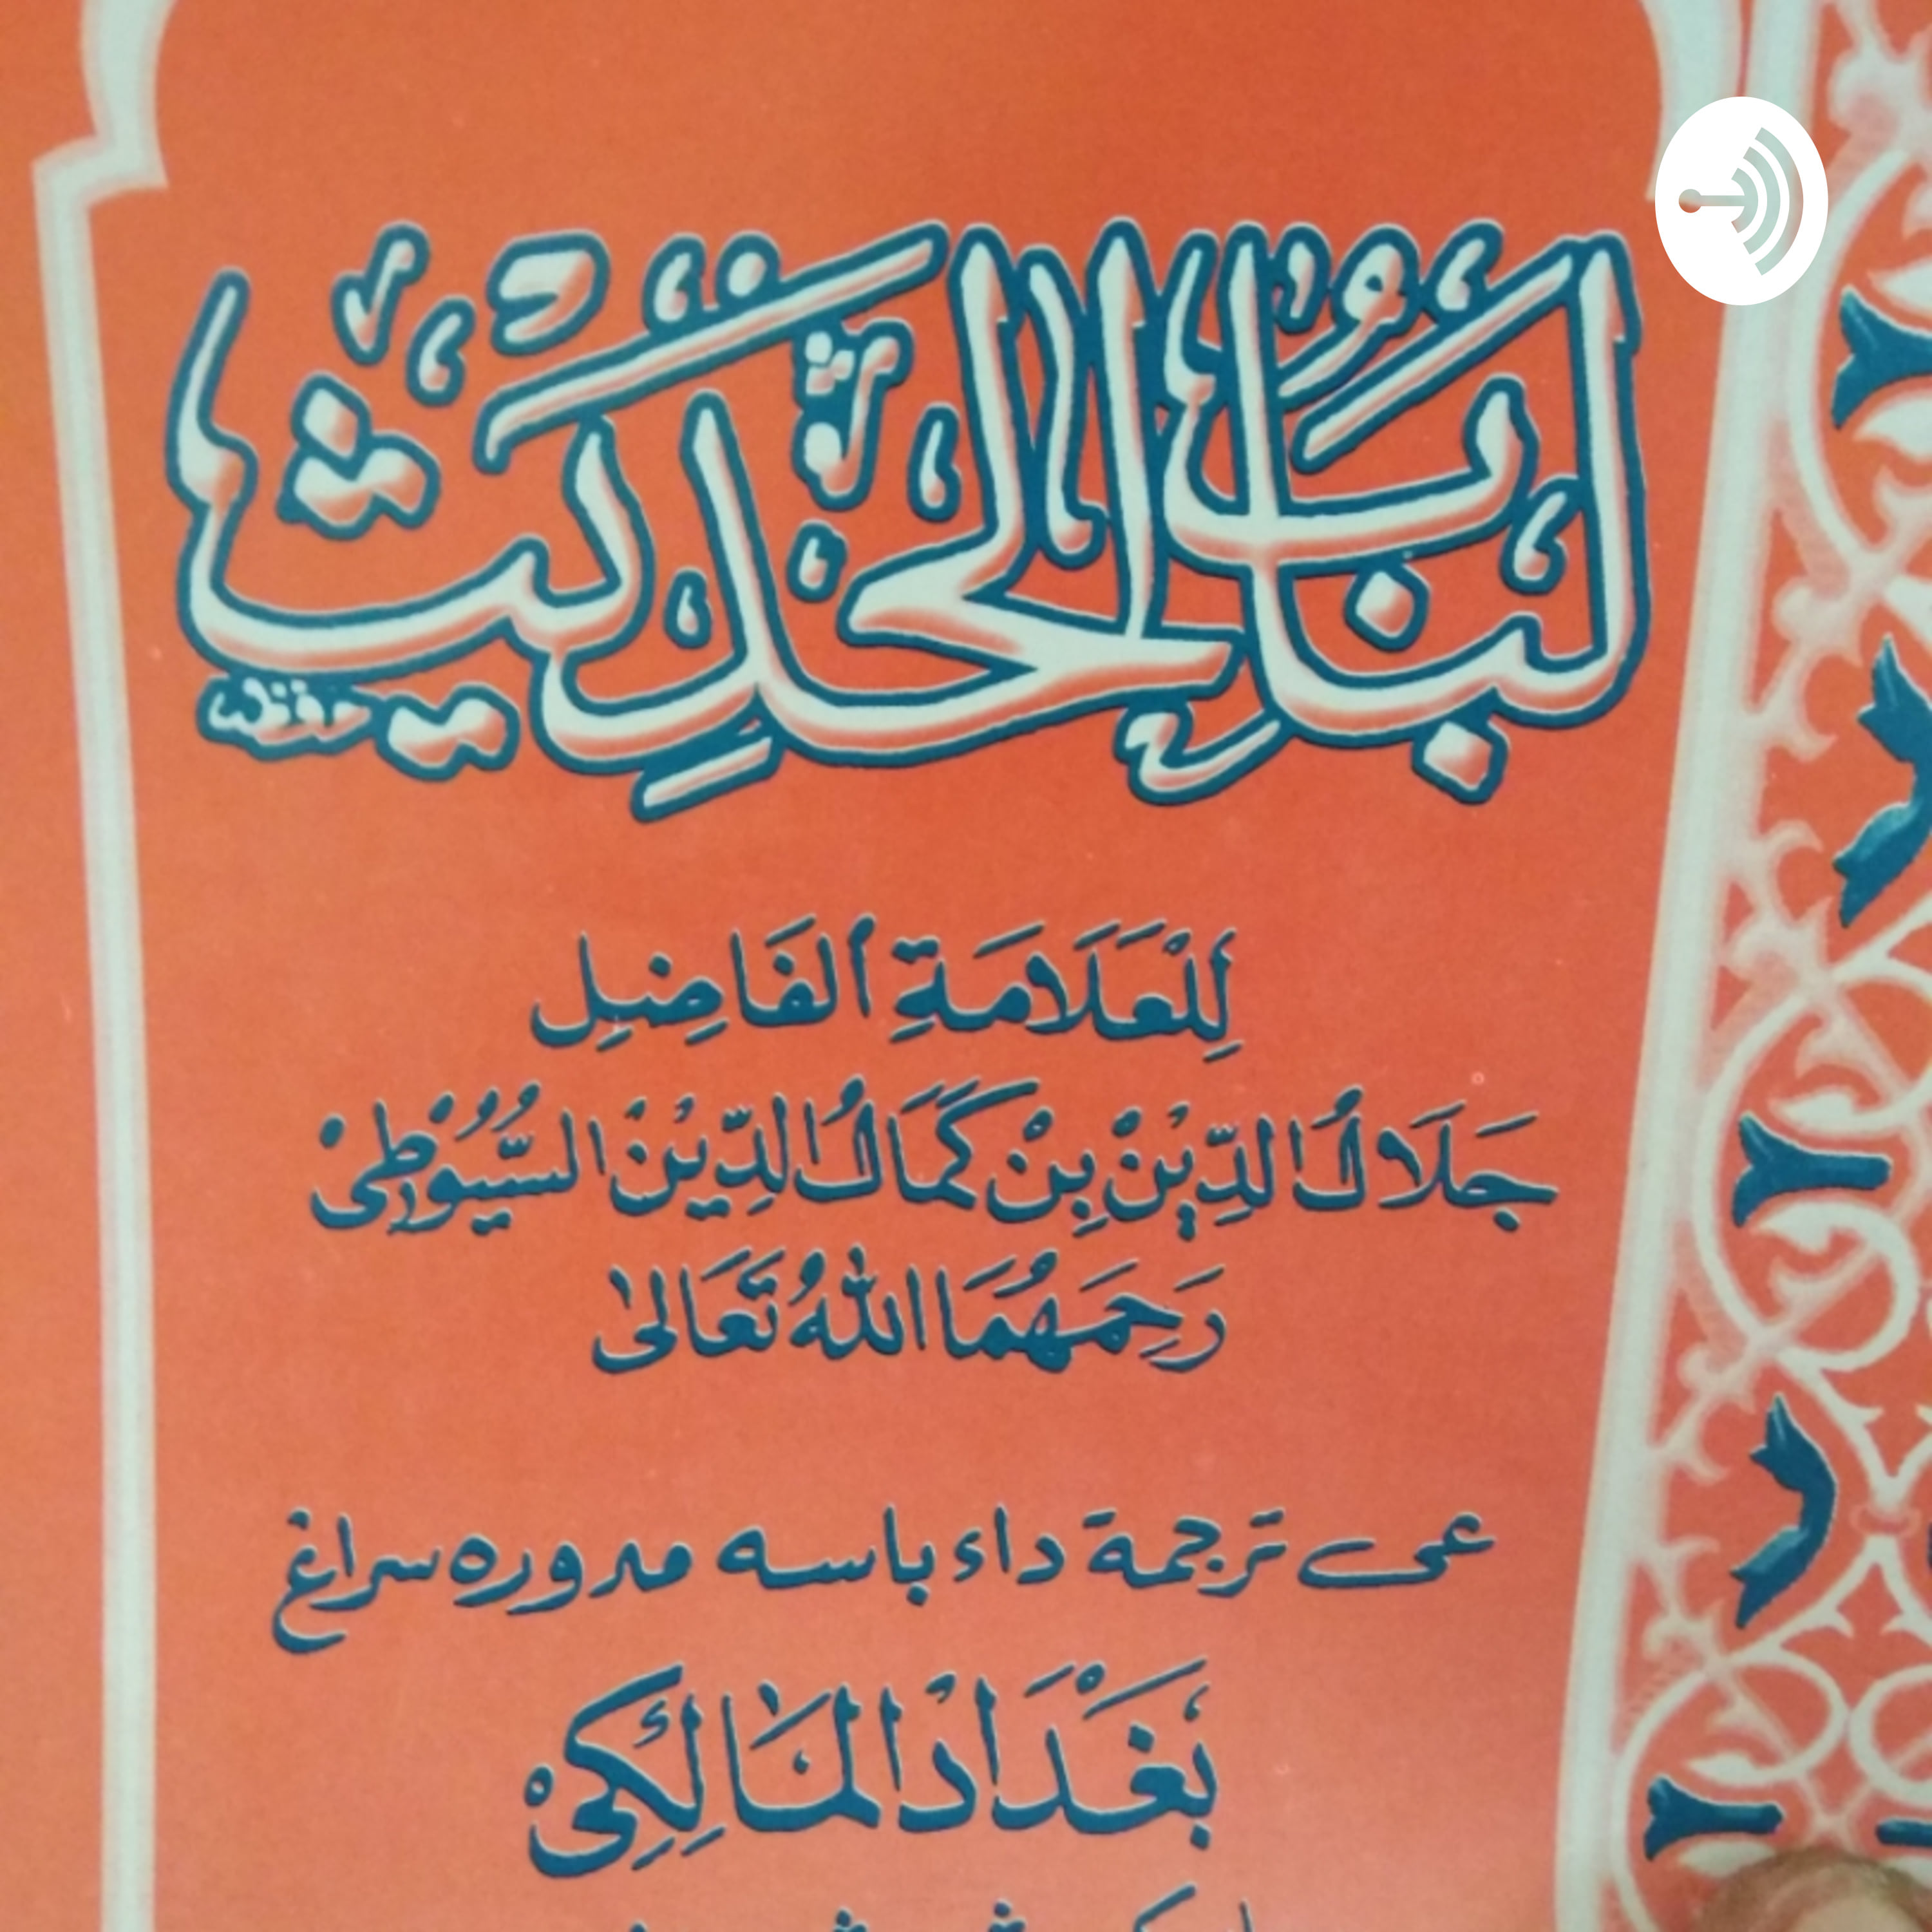 لُبَابُ الْحَدِيْثِ
لِلْعَلَامَةِ الفَاضِلِ
جَلَالُ الدِّيْنْ بِنْ كَمَالُ الدِّيْنْ السُّيُوْطِىْ
رَحِمَهُمَا اللهُ تَعَالىٰ
عى ترجمة داء باسه مدوره سراغ
بَغْدَادْ الْمَالِكِىْ